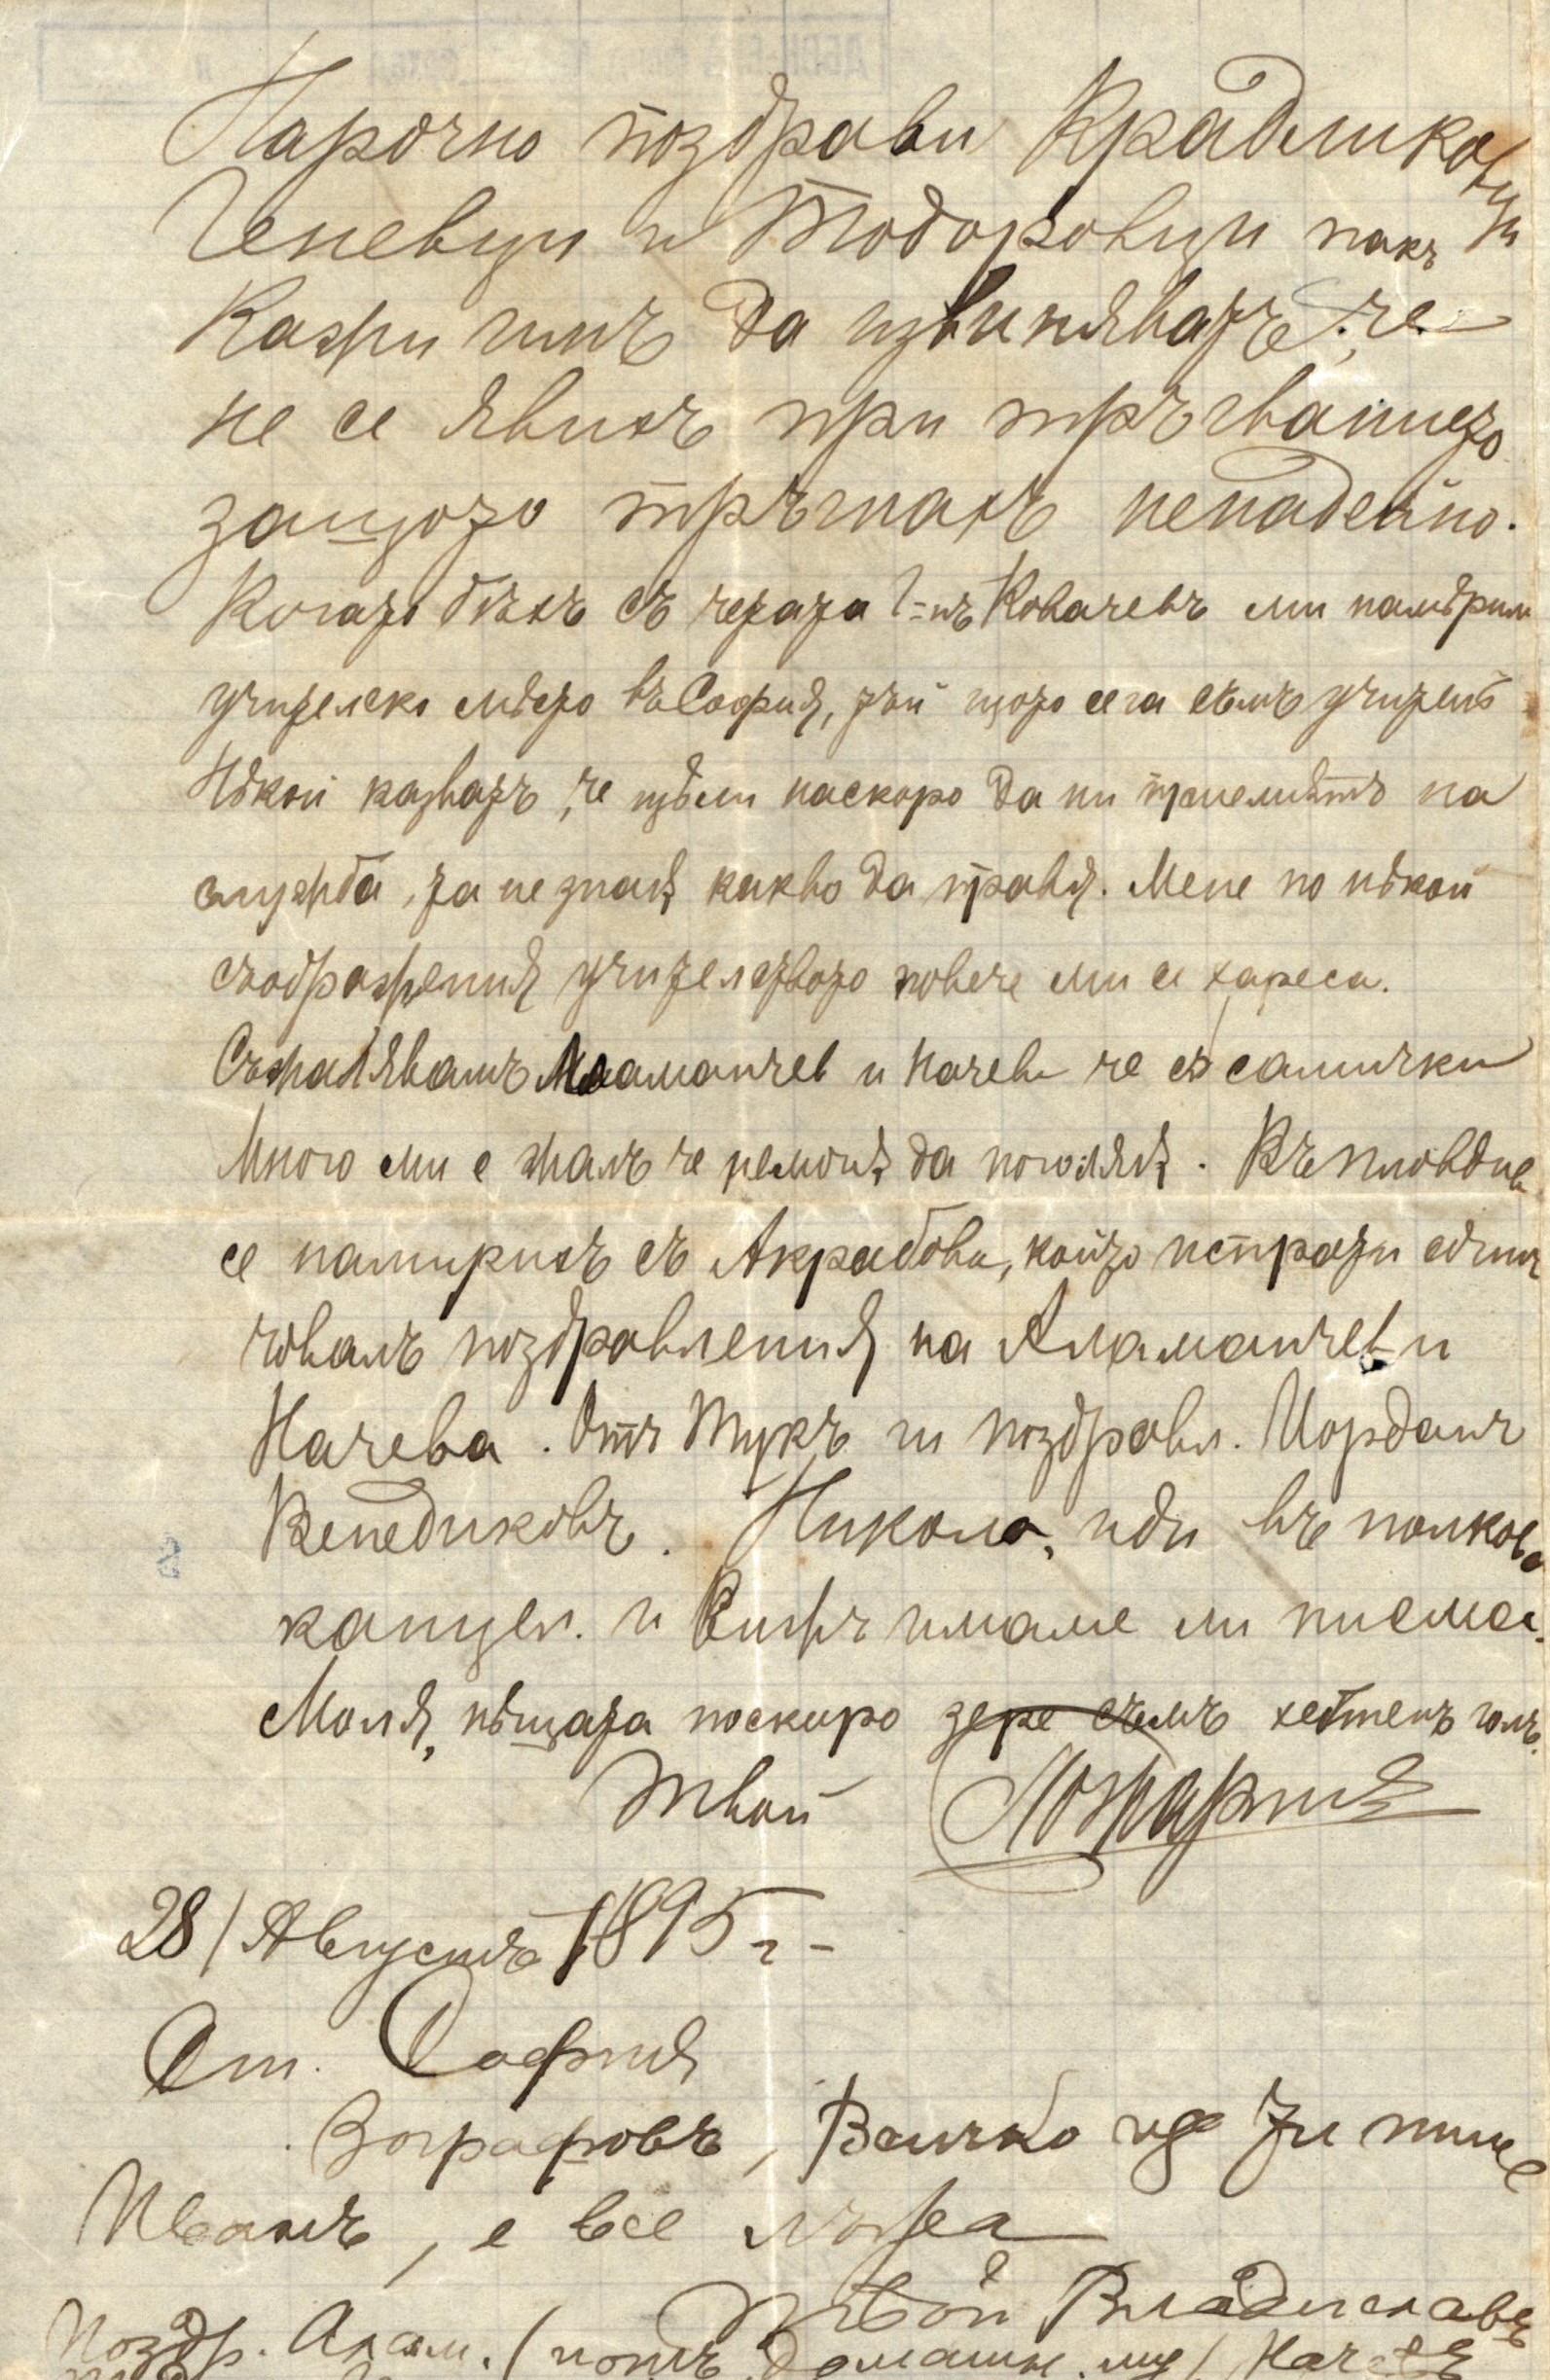 Нарочно поздрави Крадликовци
Ченевци и Тодоровци пакъ
Кажи имъ да извиняватъ, че
не се явихъ при тръгванието
защото тръгнахъ ненадейно.
Когато бѣхъ съ четата Г-нъ Ковачевъ ми намѣрил
учителско мѣсто въ София, тъй щото сега съмъ учитель
Нѣкои казватъ, че щѣли наскоро да ни приемѫтъ на
служба, та не знаѭ какво да правя. Мене по нѣкои
съображения учителството повече ми се хареса.
Съжалявамъ Аламанчев и Начева че сѫ самички
Много ми е жалъ че немогѫ да помогнѫ. Въ Пловдив
се намирихъ съ Акрабова, който испрати един
човалъ поздравления на Аламанчев и
Начева. Отъ Тукъ ги поздравл. Йорданъ
Венедиковъ. Никола, иди въ полкова
канцел. и Вижъ имаме ли писма.
Моля, нѣщата поскоро зере съмъ хептенъ голъ.
Твой
28/Августъ 1895 г-
От. София
Зографовъ, Всичко що Ти пише
Иванъ, е все лъжа
Твой Владиславъ
Поздр. Алам. (